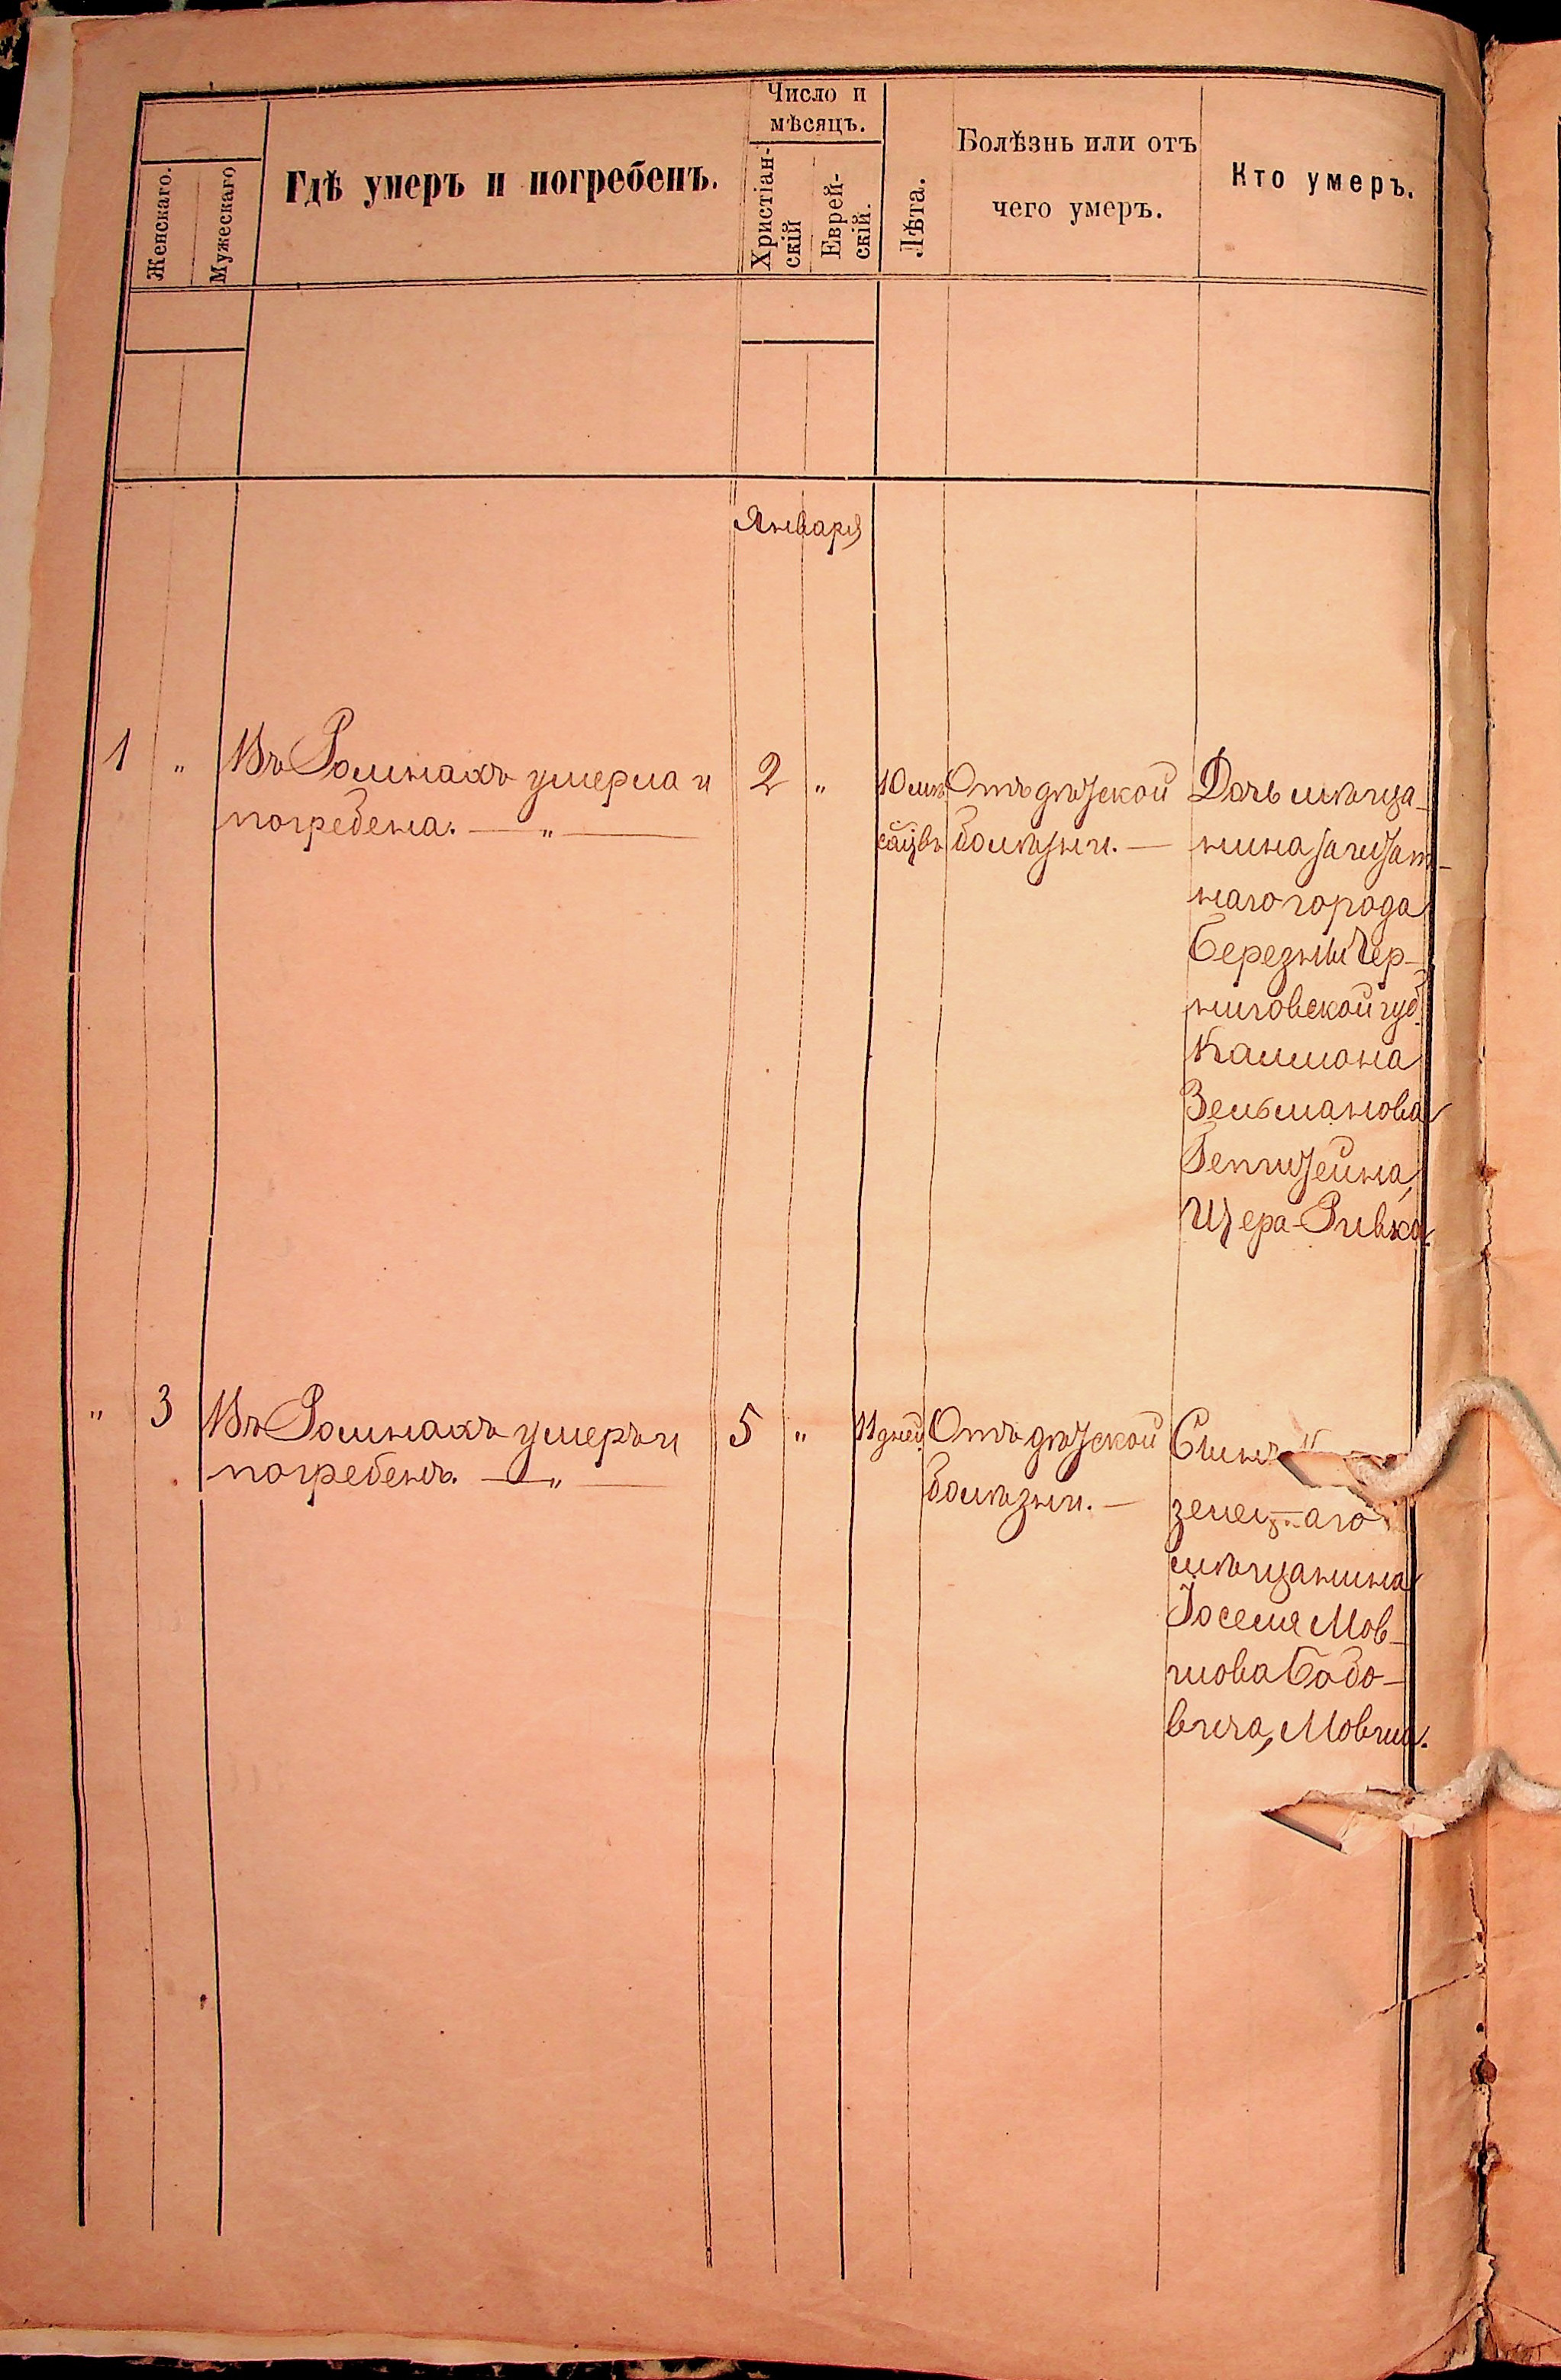 Женскаго.
Мужескаго
Гдѣ умеръ и погребенъ.
Число и
мѣсяцъ.
Христіан-
скій
Еврей-
скій.
Лѣта.
Болѣзнь или отъ
чего умеръ.
Кто умеръ.
Января
1
"
Въ Ромнахъ умерла и
погребена. — " —
2
"
10 мѣ
сяцвъ
Отъ дѣтской
болѣзни. —
Дочь мѣща-
нина заштат-
наго города
Березны Чер-
ниговской губ.
Калмона
Зельманова
Гепштейна,
Ривка
"
3
Въ Ромнахъ умеръ и
погребенъ. — " —
5
"
11 дней
Отъ дѣтской
болѣзни. —
Сынъ
мѣщанина
Іоселя Мов-
шова Бобо-
вича, Мовша.